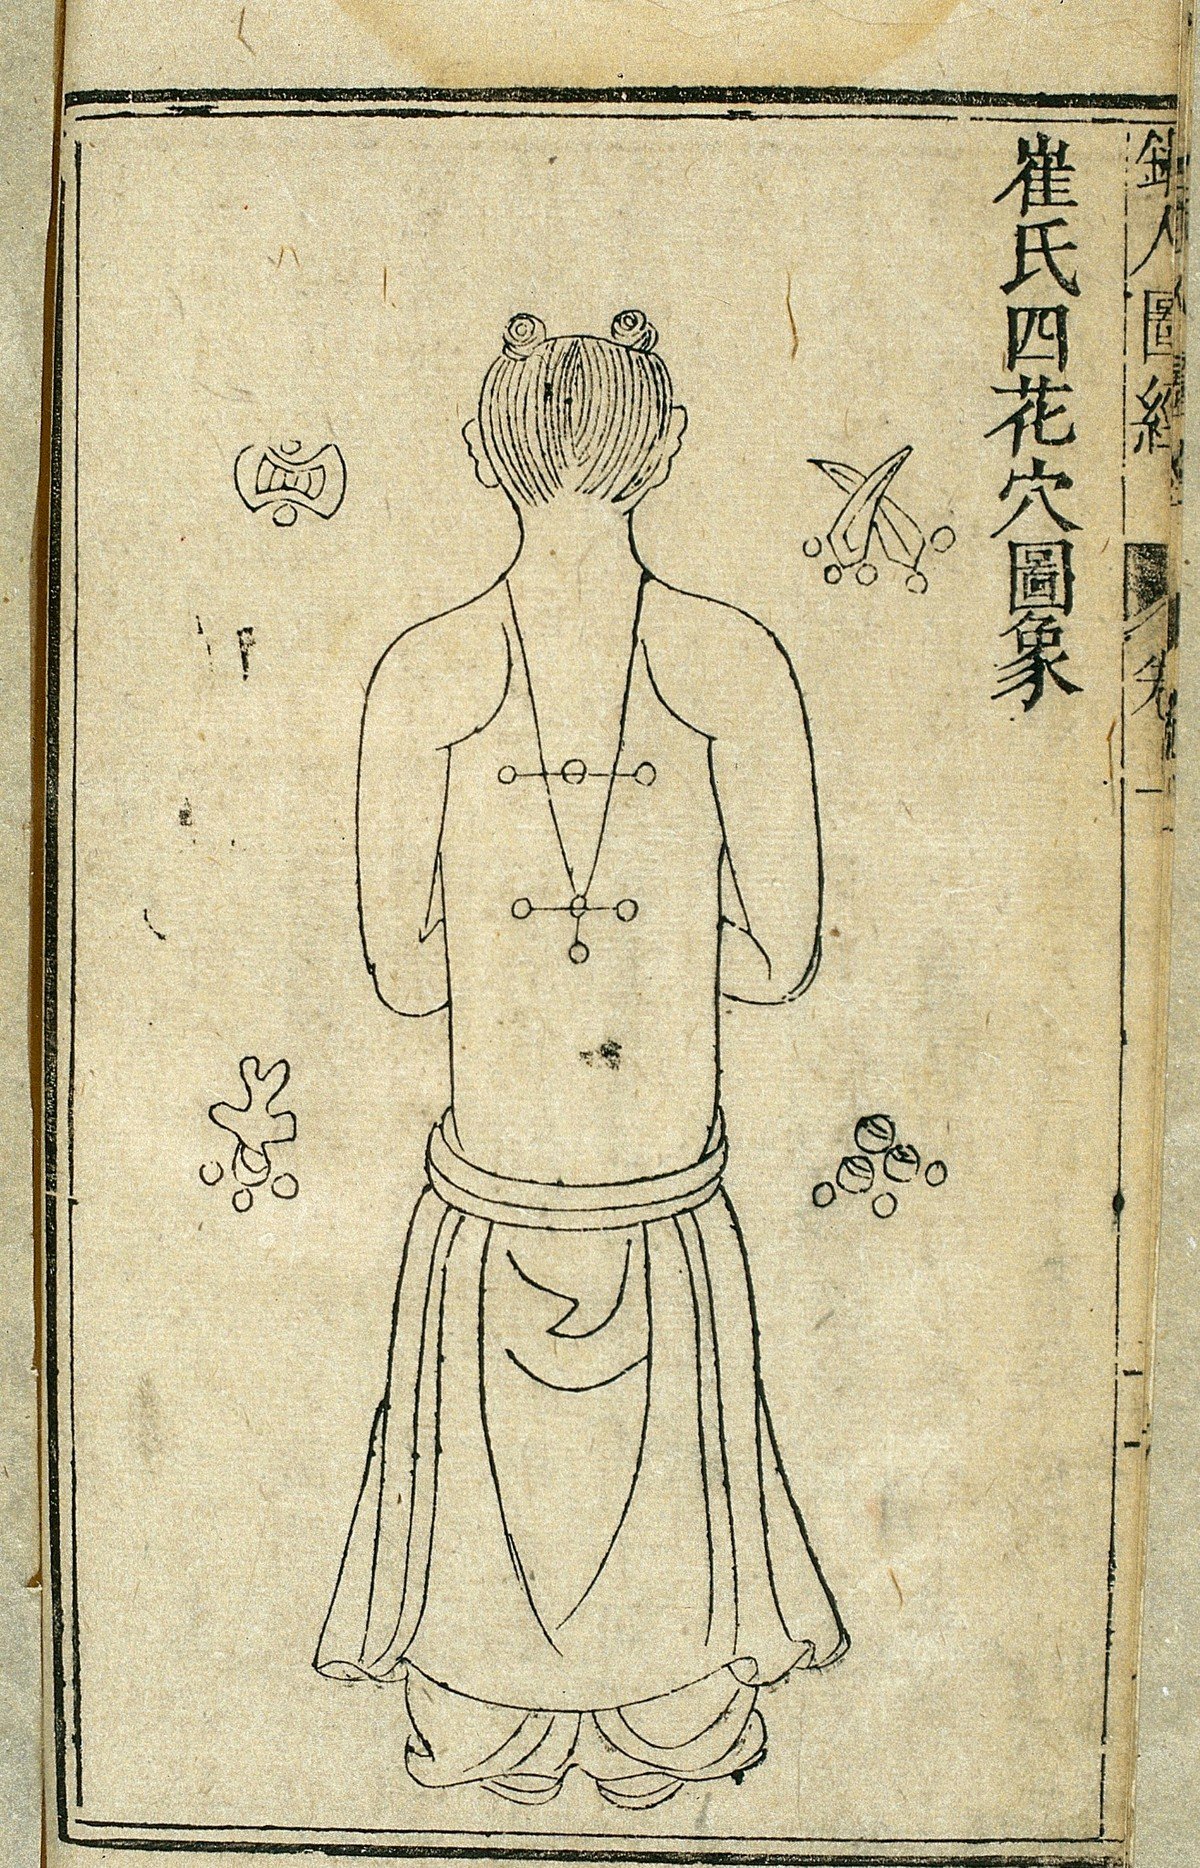 崔氏四花穴圖象
人圖經